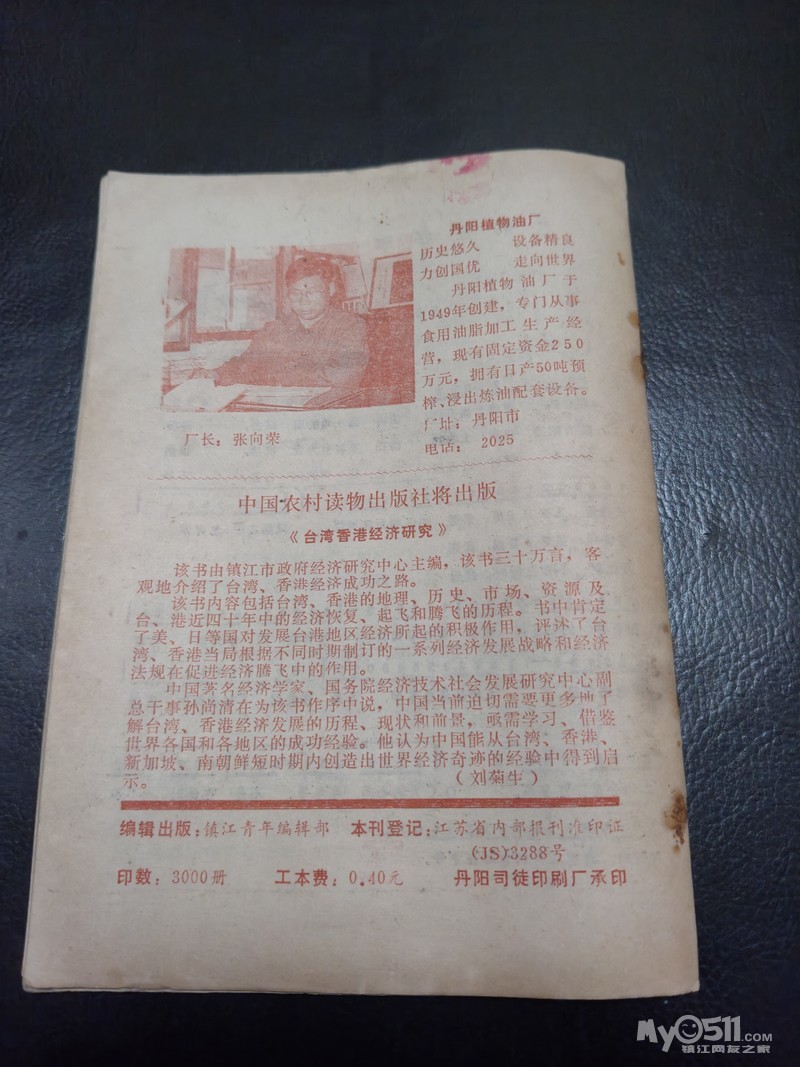 丹阳植物油厂
历史悠久 设备精良
力创国优 走向世界
丹阳植物油厂于
1949年创建，专门从事
食用油脂加工生产经
营，现有固定资金250
万元，拥有日产50吨预
榨、浸出炼油配套设备。
厂址：丹阳市
电话： 2025
厂长：张向荣
中国农村读物出版社将出版
《台湾香港经济研究》
该书由镇江市政府经济研究中心主编，该书三十万言，客
观地介绍了台湾、香港经济成功之路。
该书内容包括台湾、香港的地理、历史、市场、资源及
台、港近四十年中的经济恢复、起飞和腾飞的历程。书中肯定
了美、日等国对发展台港地区经济所起的积极作用，评述了台
湾、香港当局根据不同时期制订的一系列经济发展战略和经济
法规在促进经济腾飞中的作用。
中国著名经济学家、国务院经济技术社会发展研究中心副
总干事孙尚清在为该书作序中说，中国当前迫切需要更多地了
解台湾、香港经济发展的历程、现状和前景，亟需学习、借鉴
世界各国和各地区的成功经验。他认为中国能从台湾、香港、
新加坡、南朝鲜短时期内创造出世界经济奇迹的经验中得到启
示。 （刘菊生）
编辑出版：镇江青年编辑部 本刊登记：江苏省内部报刊准印证
(JS)3288号
印数：3000册 工本费：0.40元 丹阳司徒印刷厂承印
My0511.COM
镇江网友之家